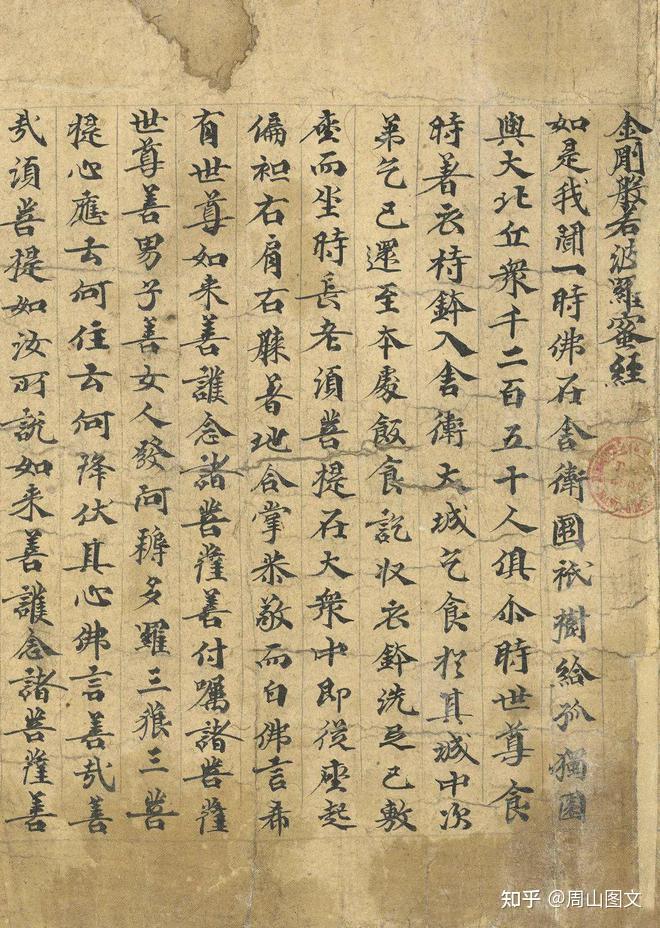 金剛般若波羅蜜經
如是我聞一時佛在舍衛國祇樹給孤獨園
與大比丘衆千二百五十人俱尒時世尊食
時著衣持鉢入舍衛大城乞食於其城中次
第乞已還至本處飯食訖収衣鉢洗足已敷
座而坐時長老須菩提在大衆中即從座起
偏袒右肩右膝著地合掌恭敬而白佛言希
有世尊如来善護念諸菩薩善付囑諸菩薩
世尊善男子善女人發阿耨多羅三藐三菩
提心應云何住云何降伏其心佛言善哉善
哉須菩提如汝所說如来善護念諸菩薩善
知乎 @周山图文